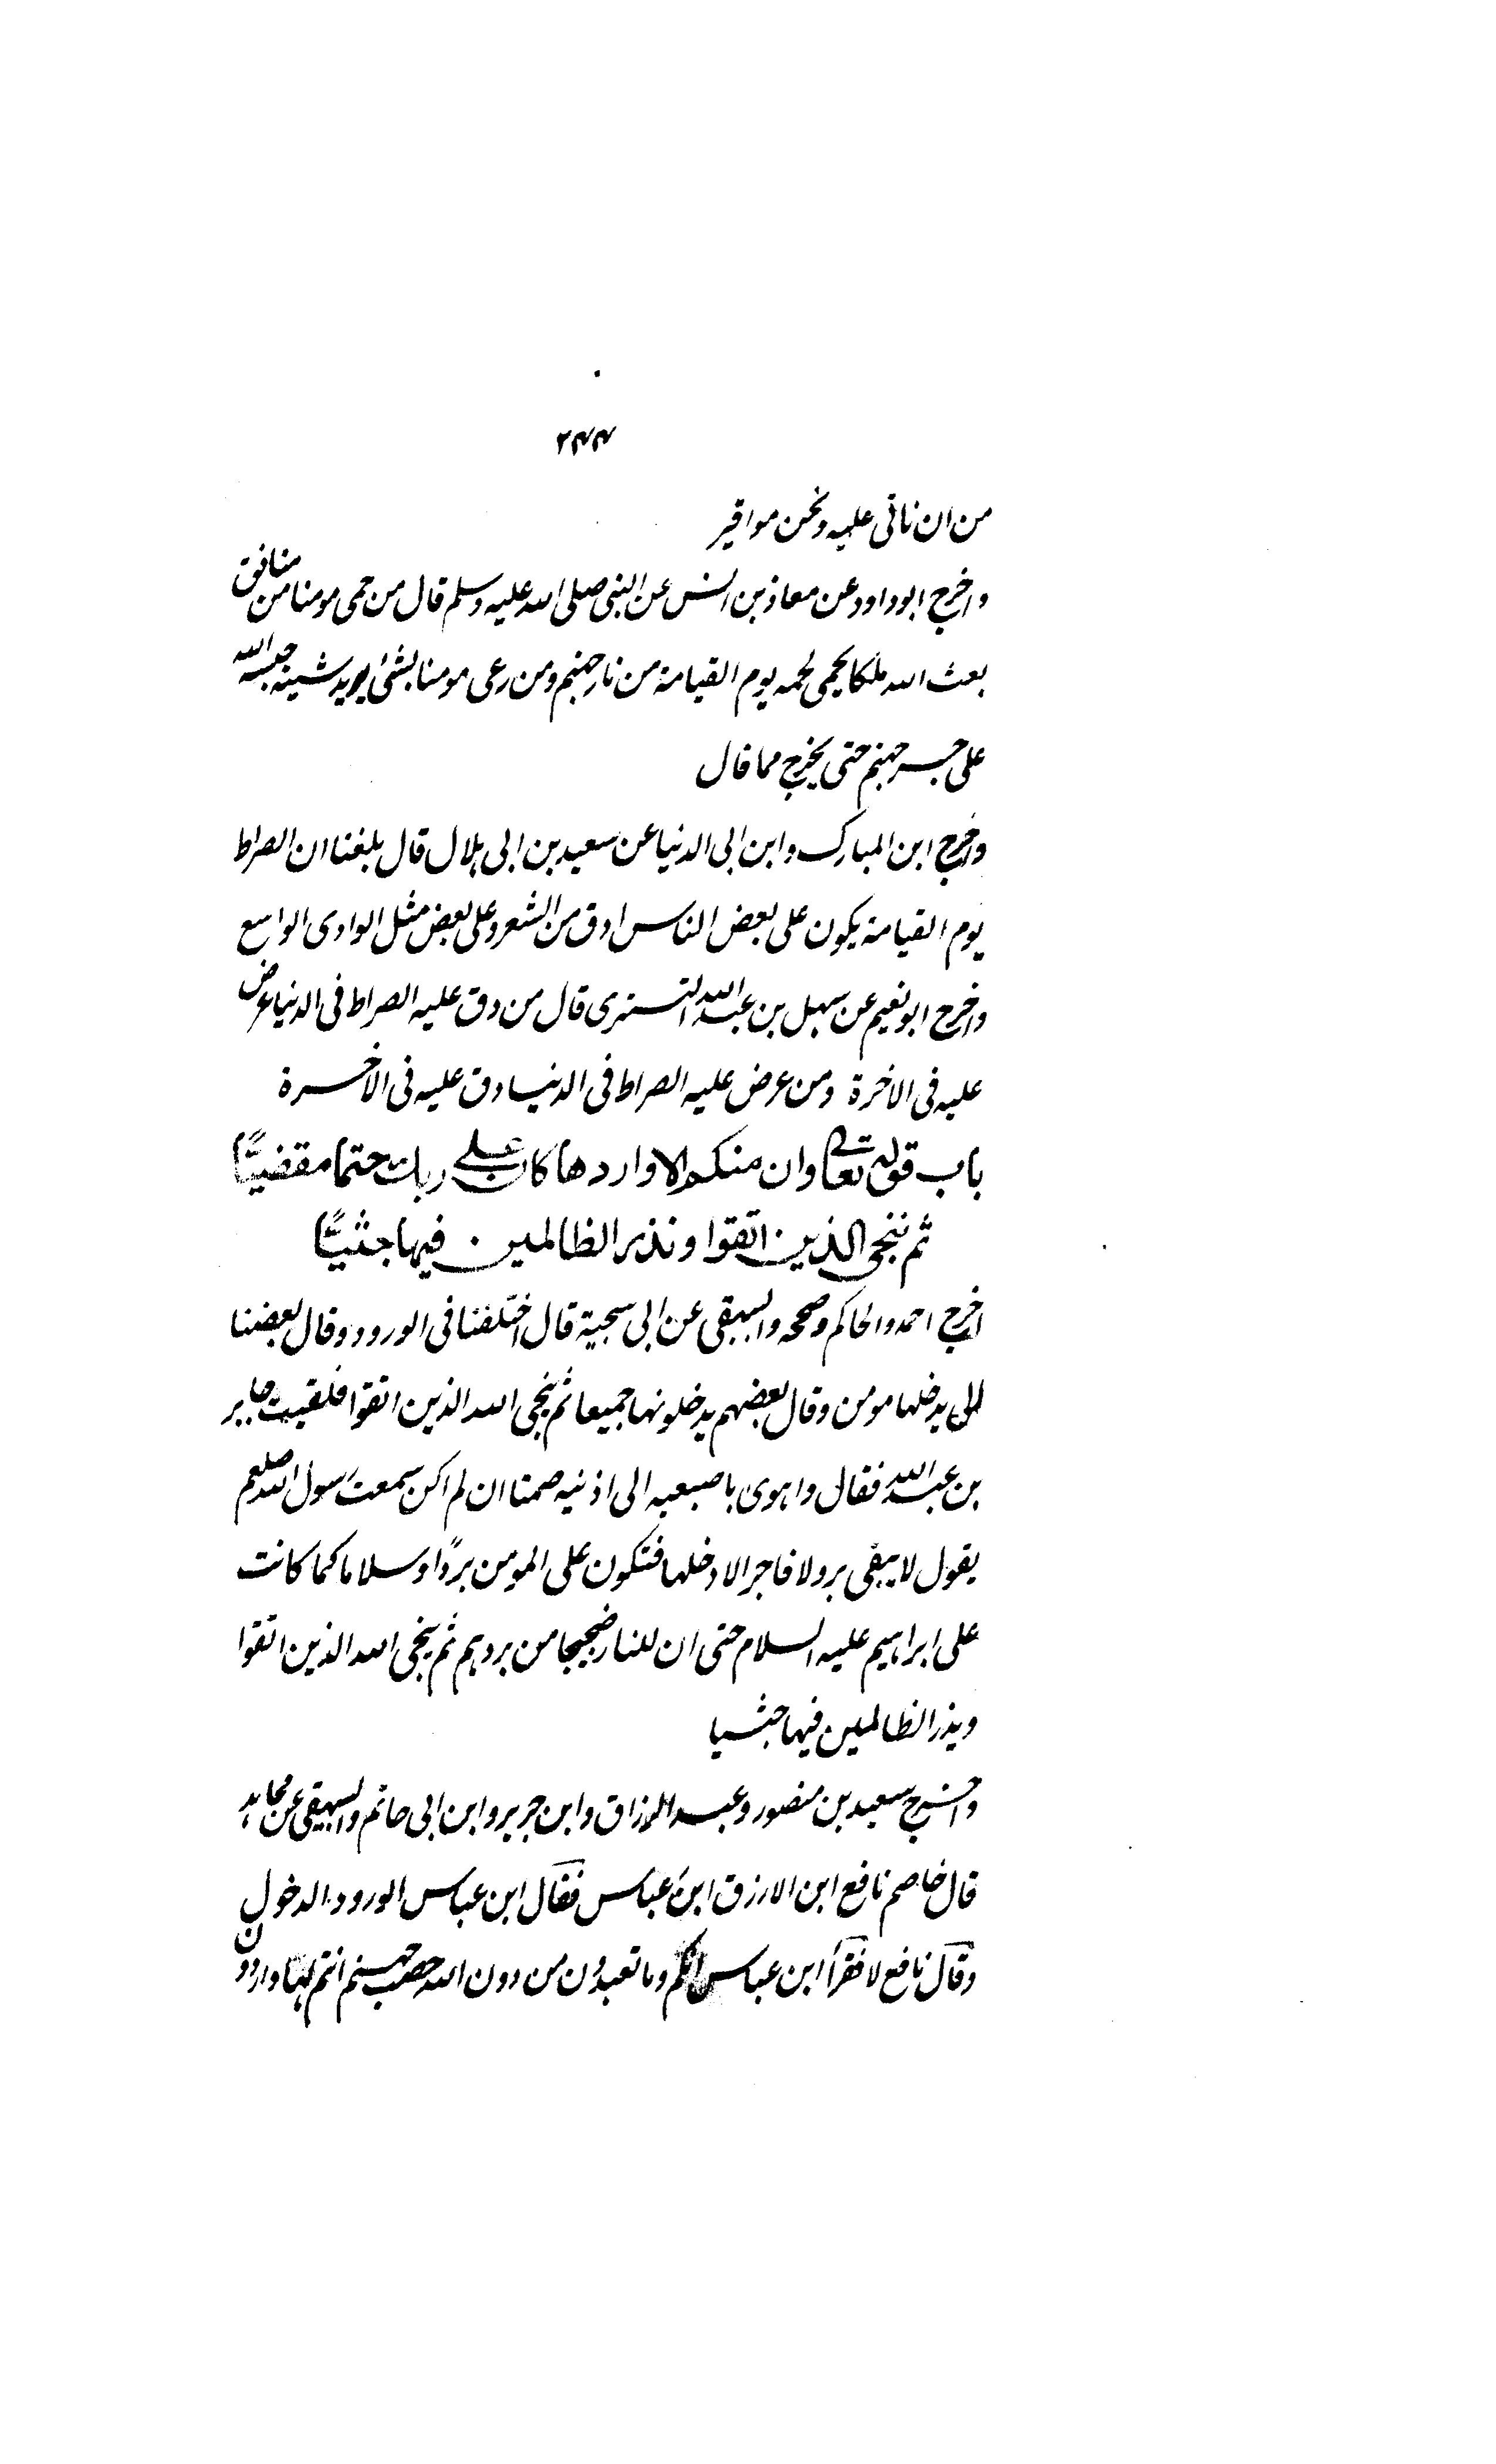 ٢٤٤
من ان ناتى عليه ونحن مواقير
واخرج ابوداود عن معاذ بن انس عن النبى صلى الله عليه وسلم قال من حمى مومنا من منافق
بعث الله ملكا يحمى لحمه يوم القيامة من نار جهنم ومن رمى مومنا بشئ يريد شينه حبسه الله
على جسر جهنم حتى يخرج مما قال
واخرج ابن المبارك وابن ابى الدنيا عن سعيد بن ابى هلال قال بلغنا ان الصراط
يوم القيامة يكون على بعض الناس ادق من الشعر وعلى بعض مثل الوادى الواسع
واخرج ابونعيم عن سهل بن عبد الله التسترى قال من دق عليه الصراط فى الدنيا عرض
عليه فى الاخرة ومن عرض عليه الصراط فى الدنيا دق عليه فى الاخرة
باب قوله تعالى وان منكم الا واردها كان على ربك حتما مقضيًّا
ثم ننجى الذين اتقوا ونذر الظالمين فيها جثيًّا
اخرج احمد والحاكم وصححه والبيهقى عن ابى سمية قال اختلفنا فى الورود وقال بعضنا
لا يدخلها مومن وقال بعضهم يدخلونها جميعا ثم ينجى الله الذين اتقوا فلقيت جابر
بن عبد الله فقال واهوى باصبعيه الى اذنيه صمتا ان لم اكن سمعت رسول الله صلعم
يقول لا يبقى بر ولا فاجر الا دخلها فتكون على المومن بردًا وسلاما كما كانت
على ابراهيم عليه السلام حتى ان للنار ضجيجا من بردهم ثم ينجى الله الذين اتقوا
ويذر الظالمين فيها جثيا
واخرج سعيد بن منصور وعبد الرزاق وابن جرير وابن ابى حاتم والبيهقى عن مجاهد
قال خاصم نافع ابن الازرق ابن عباس فقال ابن عباس الورود الدخول
وقال نافع لا فقرأ ابن عباس انكم وما تعبدون من دون الله حصب جهنم انتم لها واردون